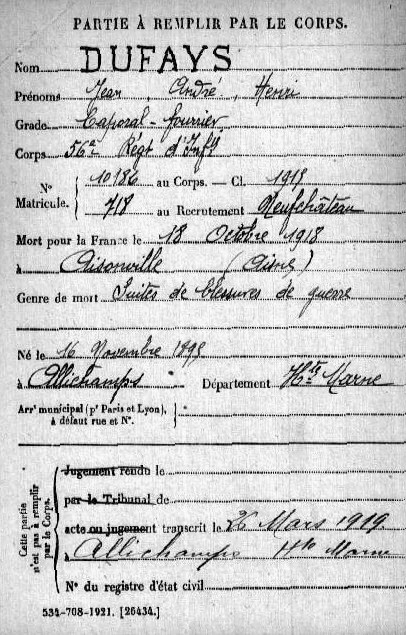 PARTIE À REMPLIR PAR LE CORPS.
Nom DUFAYS
Prénoms Jean, André, Henri
Grade Caporal-fourrier
Corps 56e Régt d'Infy
N° Matricule. { 10186 au Corps. — Cl. 1915
718 au Recrutement Neufchâteau
Mort pour la France le 18 Octobre 1918
à Aisonville (Aisne)
Genre de mort Suites de blessures de guerre
Né le 16 Novembre 1895
à Allichamps Département Hte Marne
Arrt municipal (pr Paris et Lyon), à défaut rue et N°.
Cette partie n'est pas à remplir par le Corps.
Jugement rendu le
par le Tribunal de
acte ou jugement transcrit le 26 Mars 1919
à Allichamps Hte Marne
N° du registre d'état civil
534-708-1921. [26434.]